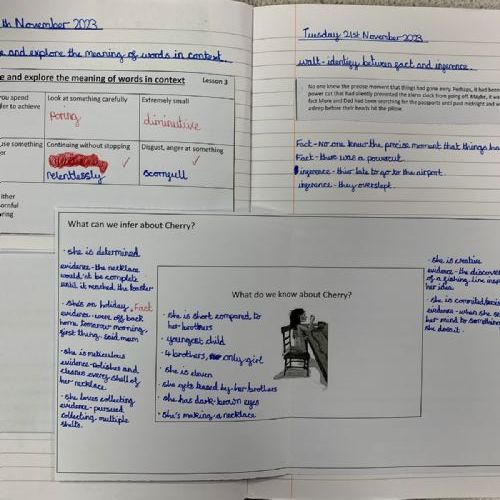 th November 2023
e and explore the meaning of words in context.
e and explore the meaning of words in context Lesson 3
ou spend
er to achieve
Look at something carefully
Poring
Extremely small
diminuitive
use something
er
Continuing without stopping
relentlessly
Disgust, anger at something
scornfull
ither
ornful
ring
Tuesday 21st November 2023
walt - identify between fact and inference.
No one knew the precise moment that things had gone awry. Perhaps, it had been
power cut that had silently prevented the alarm clock from going off. Maybe, it was
fact Mum and Dad had been searching for the passports until past midnight and
asleep before their heads hit the pillow.
Fact - No one knew the precise moment that things ha
Fact - there was a powercut.
inference - this late to go to the airport.
inference - they overslept.
What can we infer about Cherry?
· she is determined
evidence - the necklace
would 'nt be complete
until it reached the
· she's on holiday, Fact
evidence - were off back
home tomorrow morning,
first thing, said mam
· she is meticulous
evidence - polishes and
cleanes every shell of
her necklace.
· she loves collecting
evidence - pursued
collecting multiple
shells.
What do we know about Cherry?
· she is short compared to
her brothers
· youngest child
· 4 brothers, only girl
· she is eleven
· she gets teased by her brothers
· she has dark brown eyes
· she's making a necklace
· she is creative
evidence - the discover
of a fishing line insp
her idea.
· she is
evidence - when she se
her mind to somethin
she does it.